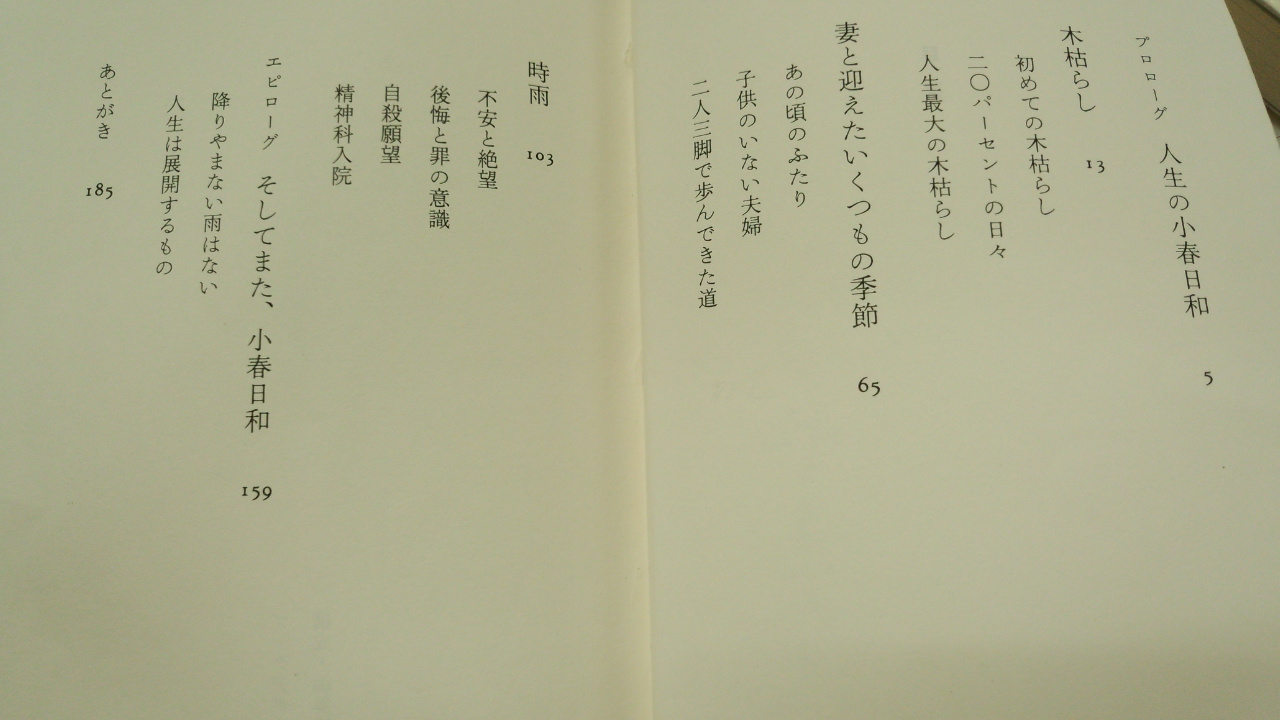 プロローグ 人生の小春日和 5
木枯らし 13
初めての木枯らし
二〇パーセントの日々
人生最大の木枯らし
妻と迎えたいくつもの季節 65
あの頃のふたり
子供のいない夫婦
二人三脚で歩んできた道
時雨 103
不安と絶望
後悔と罪の意識
自殺願望
精神科入院
エピローグ そしてまた、小春日和 159
降りやまない雨はない
人生は展開するもの
あとがき 185